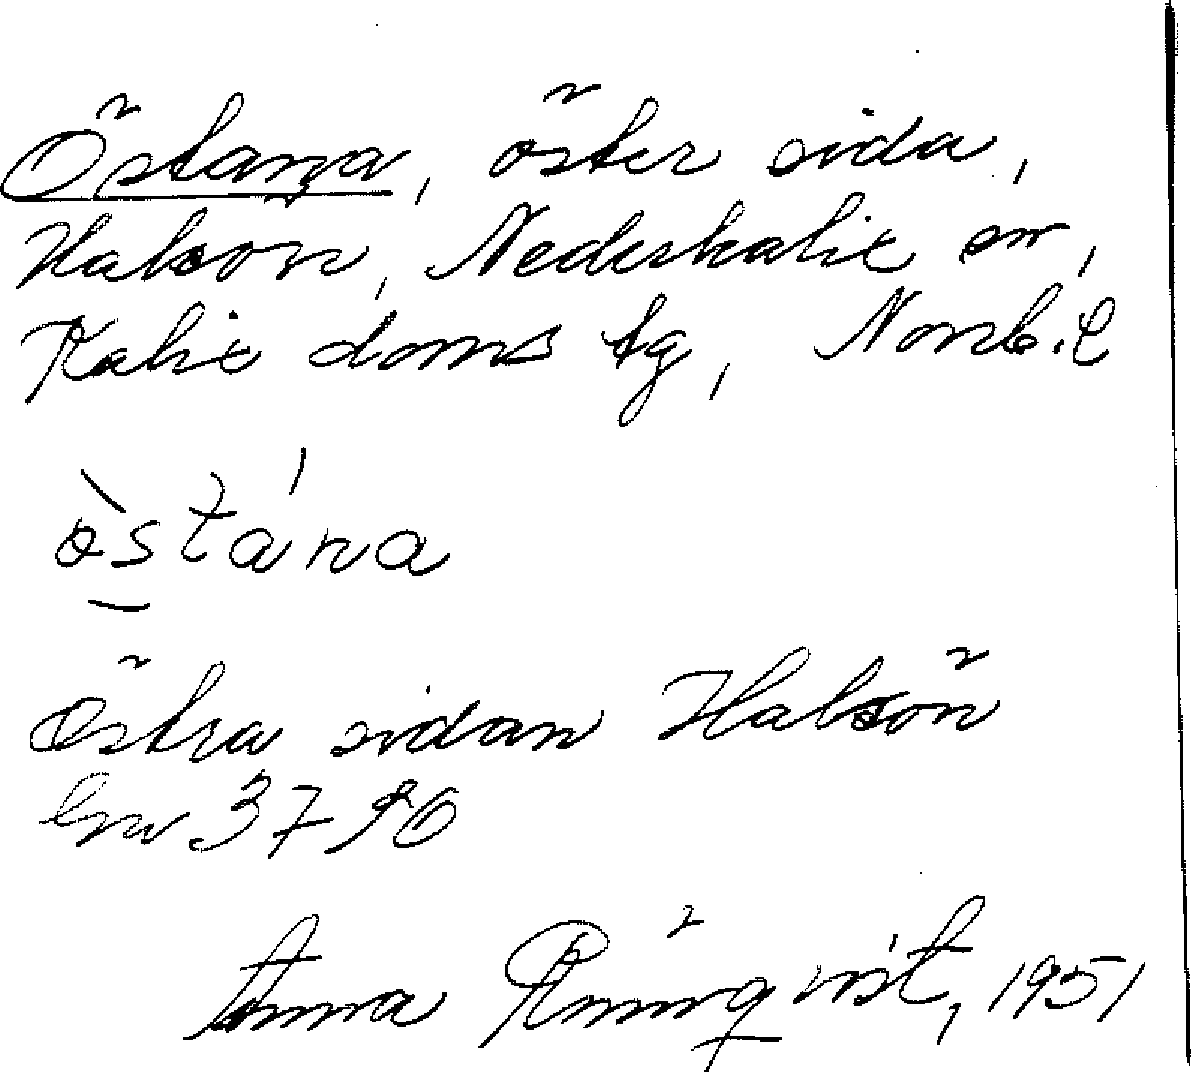 Östana, öster sida,
Halsön, Nederkalix sn,
Kalix doms tg, Norrb. l
östána
Östra sidan Halsön
Inv. 3796
Anna Rönnqvist, 1951